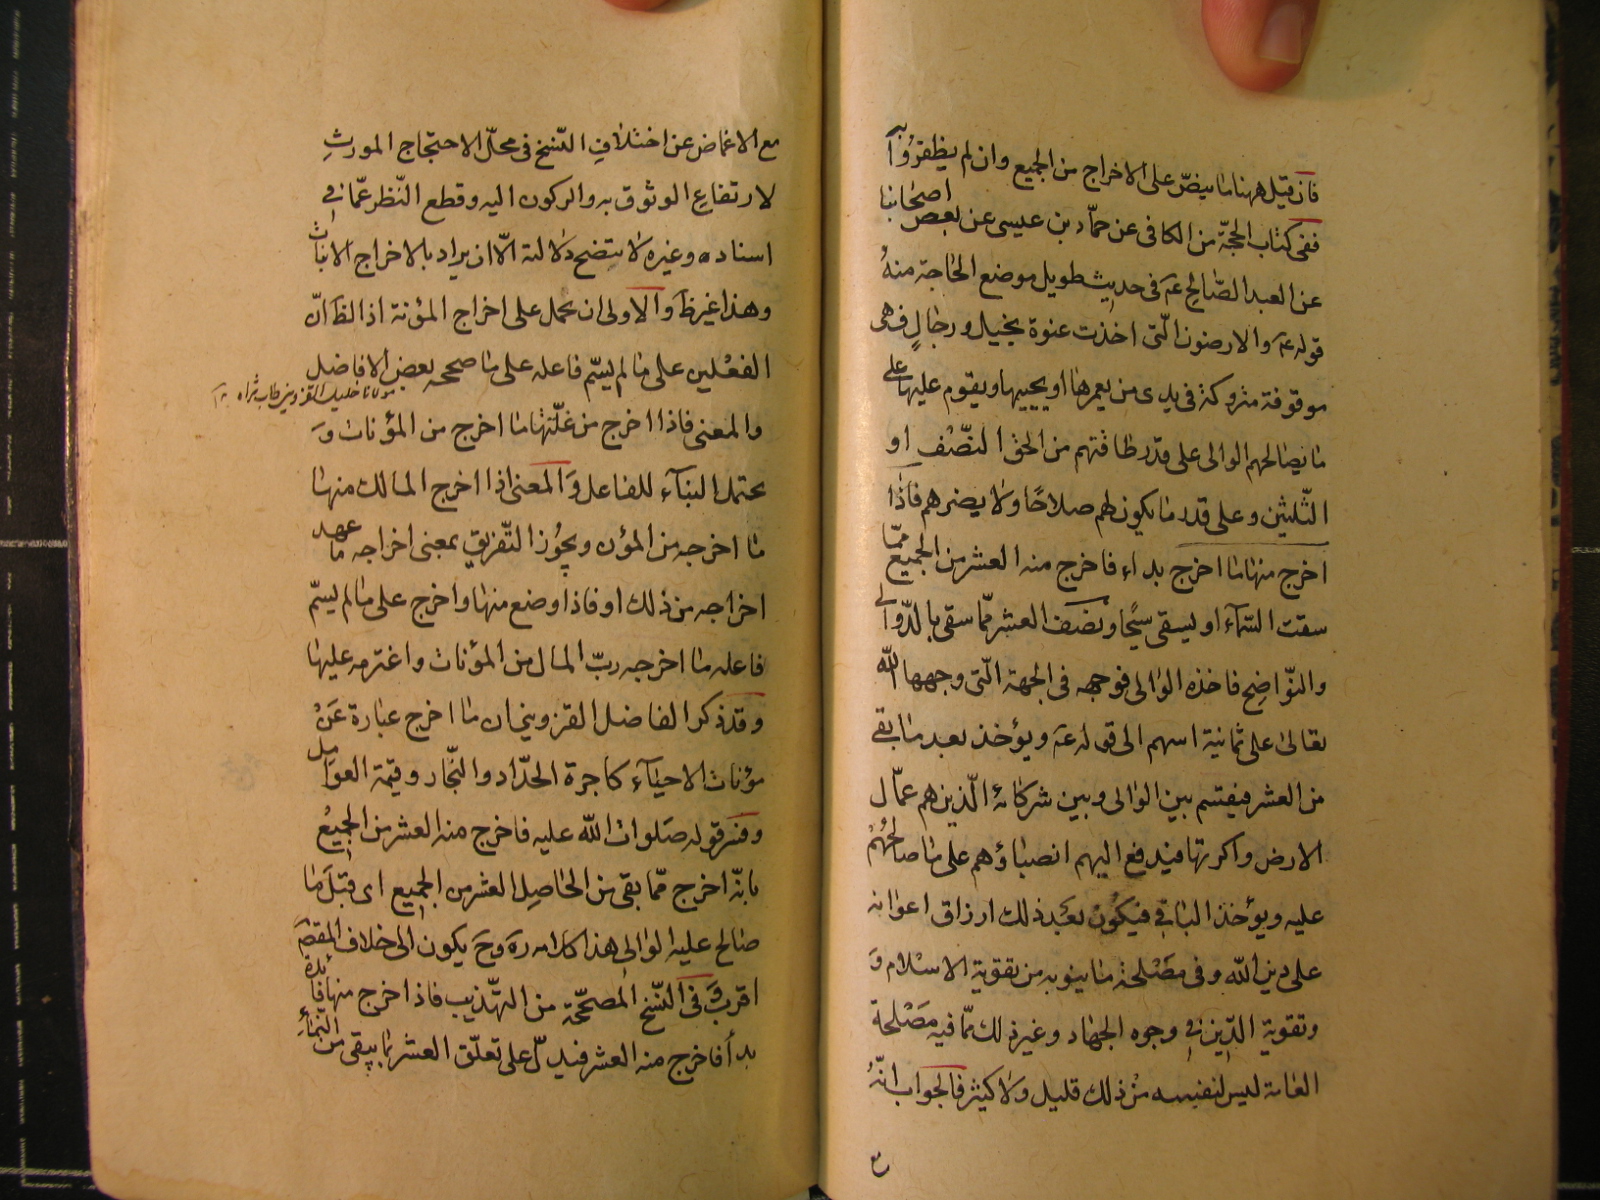 فان قيل ههنا ما ينصّ على الاخراج من الجميع وان لم يظفروا به
ففى كتاب الحجّة من الكافى عن حمّاد بن عيسى عن بعض اصحابنا
عن العبد الصّالح عم فى حديث طويل موضع الحاجة منهُ
قوله عم والارضون الّتى اخذت عنوة بخيل ورجالٍ فهى
موقوفة متروكة فى يدى من يعمرها او يحييها ويقوم عليها على
ما يصالحهم الوالى على قدر طاقتهم من الحق النّصْف او
الثّلثين وعلى قدر ما يكون لهم صلاحًا ولا يضرهم فاذا
اخرج منها ما اخرج بداء فاخرج منه العشر من الجميع ممّا
سقت السّمآء او يسقى سيحًا ونصف العشر ممّا سقى بالدّوالى
والنّواضِح فاخذه الوالى فوجهه فى الجهة الّتى وجهها اللّه
تعالى على ثمانية اسهم الى قوله عم ويؤخذ بعد ما بقى
من العشر فيقسم بين الوالى وبين شركائه الّذين هم عمّال
الارض واكرتها فيدفع اليهم انصباؤهم على ما صالحهُمْ
عليه ويؤخذ الباقى فيكون بَعْد ذلك ارزاق اعوانه
على دين اللّه وفى مصْلحة ما ينوبه من تقوية الاسْلام وَ
وتقوية الدّين فى وجوه الجهاد وغير ذلك ممّا فيه مَصْلحة
العامة ليس لنفسه من ذلك قليل ولا كثير فالجواب انّهُ
مع
مع الاغماض عن اختلافِ النّسخ فى محلّ الاحتجاج المورثِ
لارتفاعِ الوثوق به والركون اليه وقطع النّظر عمّا فى
اسناده وغيره لا يتضح دلالته الّا ان يراد بالاخراج الاثبات
وهذا غير ظَ والاولى ان يحمل على اخراج المؤنة اذ الظَ انّ
الفعْلين على ما لم يسمّ فاعله على ما صححه بعض الافاضل
مولانا خليل القزوينى طاب ثراه
والمعنى فاذا اخرج من غلّتها ما اخرج من المؤنات وَ
يحتمل البنآء للفاعل وَالمعنى اذا اخرج المالك منها
ما اخرجه من المؤن ويجُوز التّفريق بمعنى اخراجه ما عهد
اخراجه من ذلك او فاذا وضع منها واخرج على ما لم يسمّ
فاعله ما اخرجه ربّ المال من المؤنات واغترمه عليها
وقد ذكر الفاضل القزوينى ان ما اخرج عبارة عَنْ
مؤنات الاحيآء كاجرة الحدّاد والنجّار وقيمة العوامل
وفسّر قوله صَلوات اللّه عليه فاخرج منه العشر من الجميْعُ
بانّه اخرج ممّا بقى من الحاصِل العشر من الجميع اى قبْلَ ما
صالح عليه الوالى هذا كلامه ره وحَ يكون الى خلاف المقصَ
اقرب وَ فى النّسخ المصحّحة من التهّذيب فاذا اخرج منها فائدة
بدأ فاخرج منه العشر فيدلّ على تعلّق العشر بما يبقى من النّماء